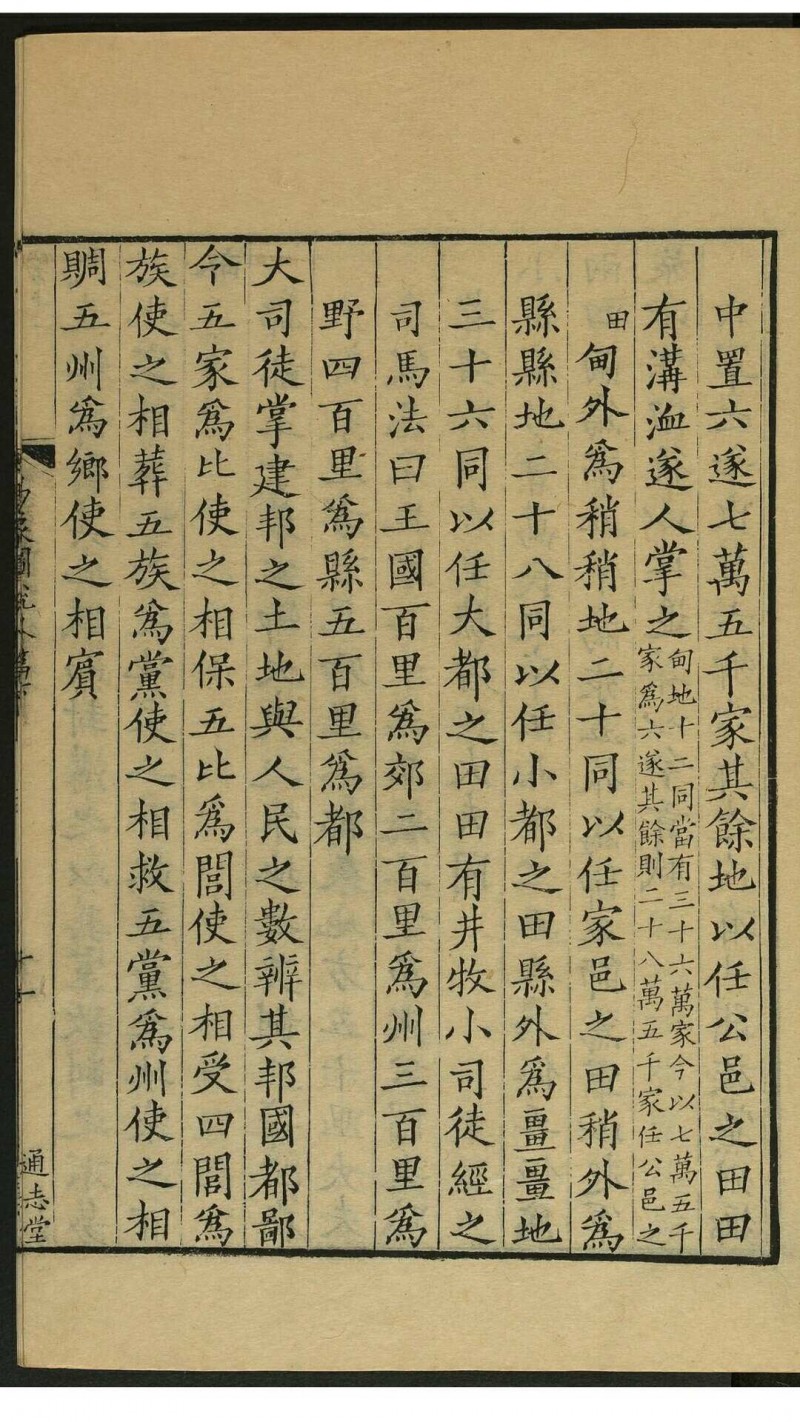 中置六遂七萬五千家其餘地以任公邑之田田
有溝洫遂人掌之甸地十二同當有三十六萬家今以七萬五千
家爲六遂其餘則二十八萬五千家任公邑之
田甸外爲稍稍地二十同以任家邑之田稍外爲
縣縣地二十八同以任小都之田縣外爲畺畺地
三十六同以任大都之田田有井牧小司徒經之
司馬法曰王國百里爲郊二百里爲州三百里爲
野四百里爲縣五百里爲都
大司徒掌建邦之土地與人民之數辨其邦國都鄙
令五家爲比使之相保五比爲閭使之相受四閭爲
族使之相葬五族爲黨使之相救五黨爲州使之相
賙五州爲鄉使之相賓
十一
通志堂